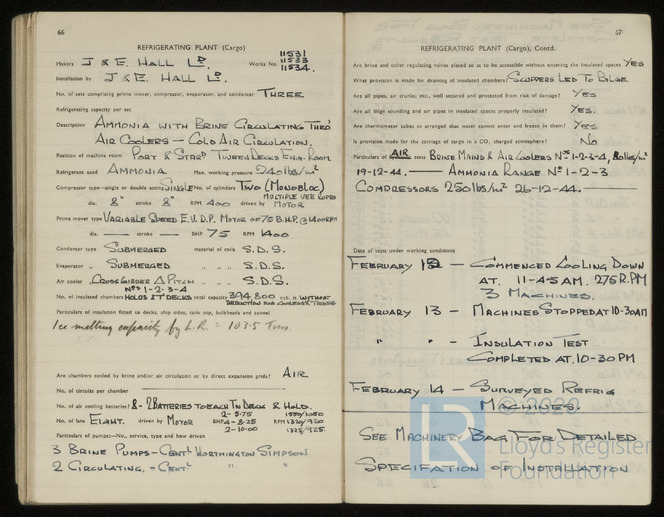 66
REFRIGERATING PLANT (Cargo)
Makers J & E. HALL LD Works No. 11531 11533 11534.
Installation by J & E. HALL LD.
No. of sets comprising prime mover, compressor, evaporator, and condenser THREE
Refrigerating capacity per set
Description AMMONIA WITH BRINE CIRCULATING THRO'
AIR COOLERS - COLD AIR CIRCULATION.
Position of machine room PORT & STARD TWEENDECKS ENG. ROOM
Refrigerant used AMMONIA. Max. working pressure 240 lbs/in²
Compressor type—single or double acting SINGLE No. of cylinders TWO (MONOBLOC)
dia. 8" stroke 8" RPM 400 driven by MULTIPLE VEE ROPES MOTOR
Prime mover type VARIABLE SPEED E.V.D.P. MOTOR OF 75 B.H.P. @ 1400 RPM
dia. stroke BHP 75 RPM 1400
Condenser type SUBMERGED material of coils S.D.S.
Evaporator " SUBMERGED " " " S.D.S.
Air cooler " CROSS GIRDER Δ PITCH " " " S.D.S.
No. of insulated chambers Nos 1-2-3-4 HOLDS & T DECKS total capacity 394,800 cub. ft. WITHOUT DEDUCTION FOR COOLERS, TRUNKS
Particulars of insulation fitted to decks, ship sides, tank top, bulkheads and tunnel
Ice melting capacity by L.R. = 107.5 Tons.
Are chambers cooled by brine and/or air circulation or by direct expansion grids? AIR
No. of circuits per chamber
No. of air cooling batteries? 8- 2 BATTERIES TO EACH TN DECK & HOLD.
No. of fans EIGHT. driven by MOTOR BHP 2-5.75 4-8.25 2-10.00 RPM 1550/1050 1320/920 1325/925.
Particulars of pumps—No., service, type and how driven
3 BRINE PUMPS - CENTL WORTHINGTON SIMPSON
2 CIRCULATING. - CENTL " "
67
REFRIGERATING PLANT (Cargo), Contd.
Are brine and other regulating valves placed so as to be accessible without entering the insulated spaces YES
What provision is made for draining of insulated chambers? SCUPPERS LED TO BILGE
Are all pipes, air trunks, etc., well secured and protected from risk of damage? YES
Are all bilge sounding and air pipes in insulated spaces properly insulated? YES.
Are thermometer tubes so arranged that water cannot enter and freeze in them? YES
Is provision made for the carriage of cargo in a CO₂ charged atmosphere? NO
Particulars of AIR tests BRINE MAINS & AIR COOLERS Nos 1-2-3-4, lbs/in²
19-12-44. — AMMONIA RANGE No 1-2-3
COMPRESSORS 250 lbs/in² 26-12-44.
Date of tests under working conditions
FEBRUARY 12 — COMMENCED COOLING DOWN
AT. 11-45 A.M. 275 R.P.M
3 MACHINES.
FEBRUARY 13 - MACHINES STOPPED AT 10-30 AM
" " - INSULATION TEST
COMPLETED AT. 10-30 PM
FEBRUARY 14 - SURVEYED REFRIG
MACHINES.
SEE MACHINERY BAG FOR DETAILED
SPECIFATION OF INSTALLATION
© 2020
LR
Lloyd's Register
Foundation